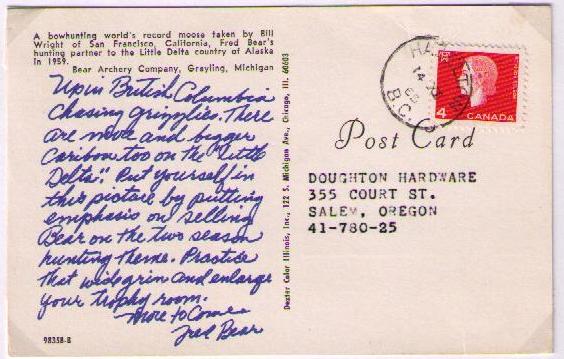 A bowhunting world's record moose taken by Bill
Wright of San Francisco, California, Fred Bear's
hunting partner to the Little Delta country of Alaska
in 1959.
Bear Archery Company, Grayling, Michigan
Up in British Columbia
chasing grizzlies. There
are more and bigger
Caribou too on the "Little
Delta". Put yourself in
this picture by putting
emphasis on selling
Bear on the two season
hunting theme. Practice
that wide grin and enlarge
your trophy room.
More to Come
Fred Bear
98358-B
Dexter Color Illinois, Inc., 122 S. Michigan Ave., Chicago, Ill. 60603
B.C.
4
CANADA
Post Card
DOUGHTON HARDWARE
355 COURT ST.
SALEM, OREGON
41-780-25